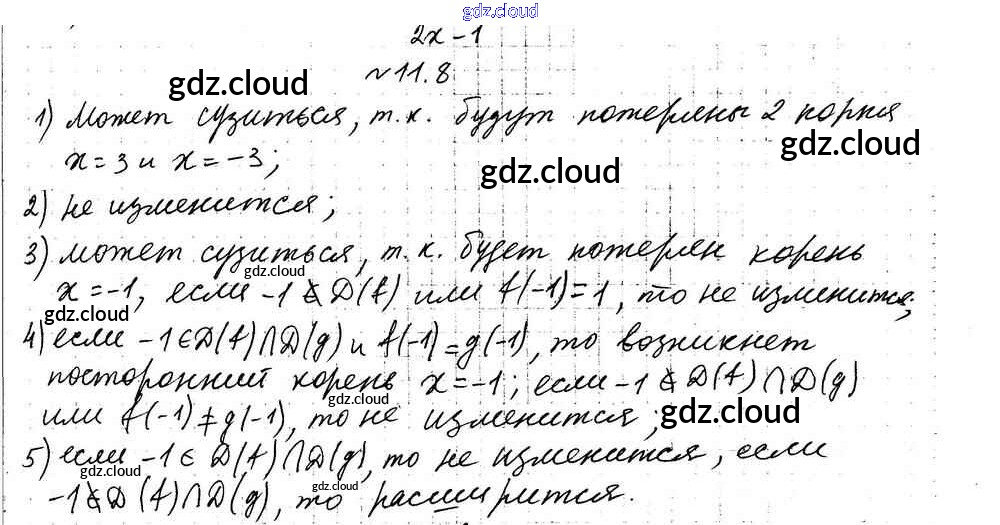 gdz.cloud
2x-1
№11.8
gdz.cloud
1) может сузиться, т.к. будут потеряны 2 корня
gdz.cloud
x=3 и x=-3;
gdz.cloud
2) не изменится;
3) может сузиться, т.к. будет потерян корень
gdz.cloud
x=-1, если -1∉D(f) или f(-1)=1, то не изменится;
gdz.cloud
4) если -1∈D(f)∩D(g) и f(-1)=g(-1), то возникнет
посторонний корень x=-1; если -1∉D(f)∩D(g)
gdz.cloud
или f(-1)≠g(-1), то не изменится;
gdz.cloud
5) если -1∈D(f)∩D(g), то не изменится, если
gdz.cloud
-1∉D(f)∩D(g), то расширится.
gdz.cloud